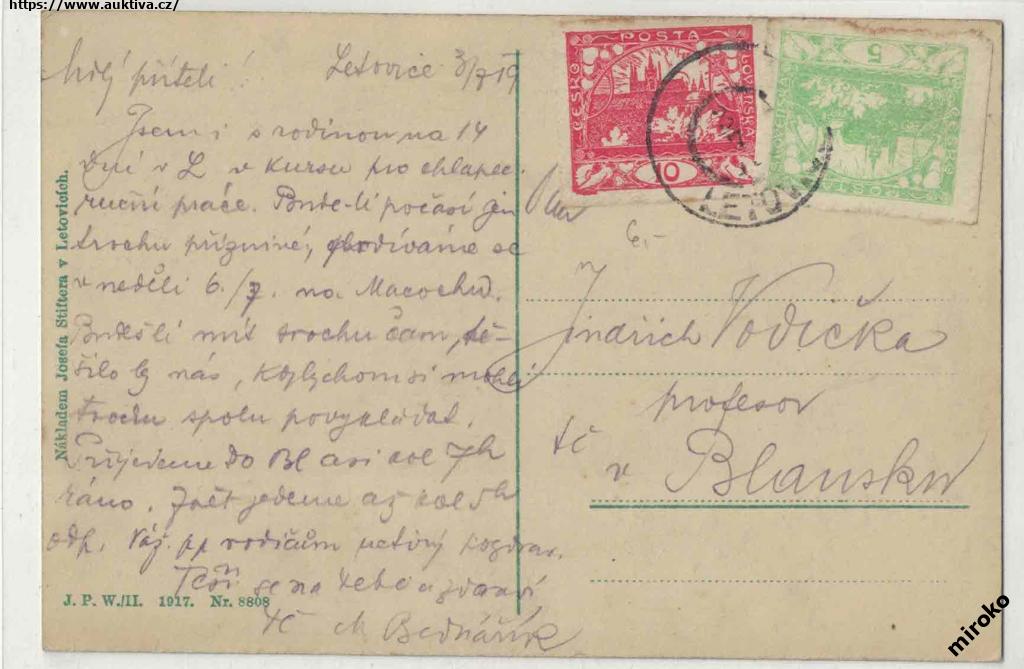 https://www.auktiva.cz/
Milý příteli! Letovice 3/7 19
Jsem i s rodinou na 14
dní v L v kursu pro chlapec.
ruční práce. Bude-li počasí jen
trochu příznivé, podíváme se
v neděli 6./7. na Macochu.
Budeš-li mít trochu času, tě-
šilo by nás, kdybychom si mohli
trochu spolu povykládat.
Přijedeme do Bl asi kol 7h
ráno. Zpět jedeme až kol 5h
odp. Váž. pp rodičům uctivý pozdrav.
Těší se na Tebe a zdraví
tč Bednářík
Nákladem Josefa Stiftera v Letovicích.
J. P. W./II. 1917. Nr. 8808
POSTA
ČESKO
SLOVENSKÁ
10
5
LETOVICE
6.-
Jindřich Vodička
profesor
tč
v Blansku
miroko